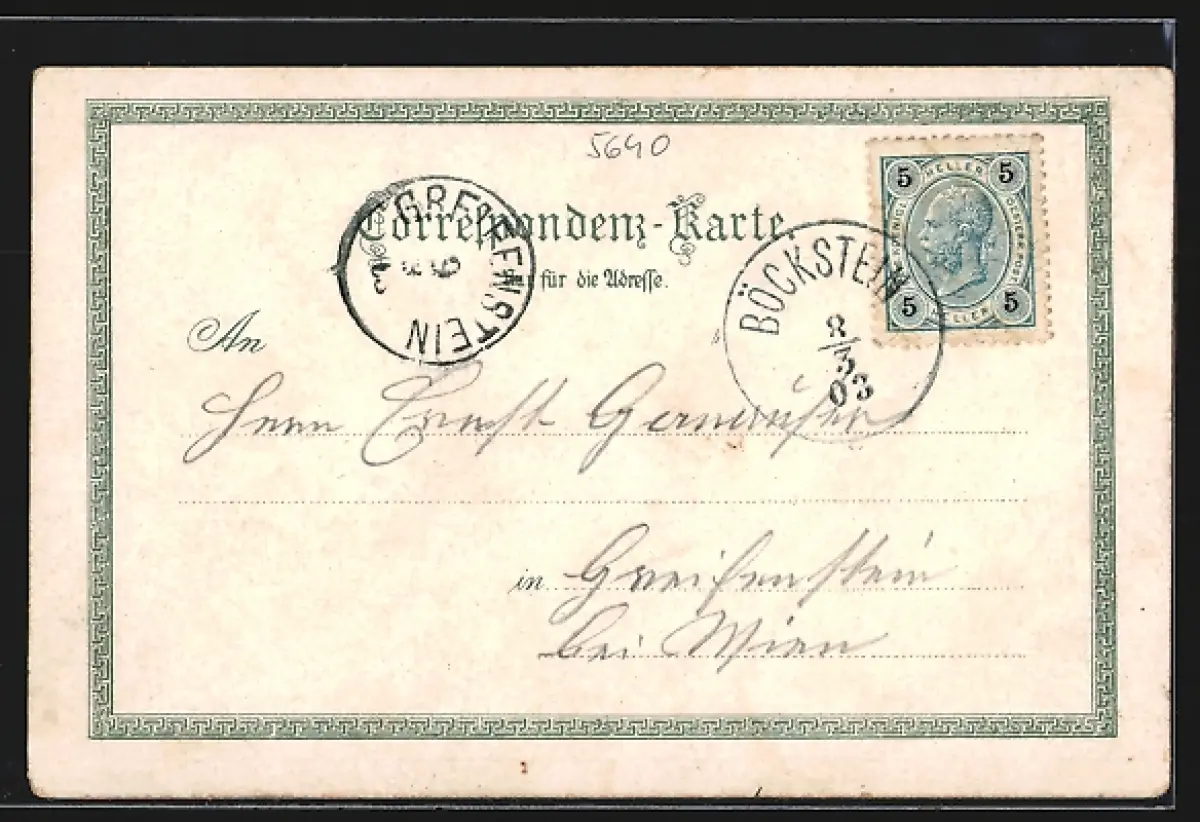 5640
Correspondenz-Karte.
Nur für die Adresse.
5 HELLER 5
5 HELLER 5
BÖCKSTEIN
8/3
03
GREIFENSTEIN
9 3
An
Herrn Ernst
in Greifenstein
bei Wien